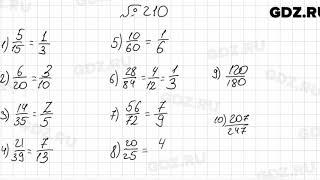 GDZ.RU
№ 210
1) 5/15 = 1/3
2) 6/20 = 3/10
3) 14/35 = 2/5
4) 21/39 = 7/13
5) 10/60 = 1/6
6) 28/84 = 4/12 = 1/3
7) 56/72 = 7/9
8) 20/25 = 4
9) 120/180
10) 207/247